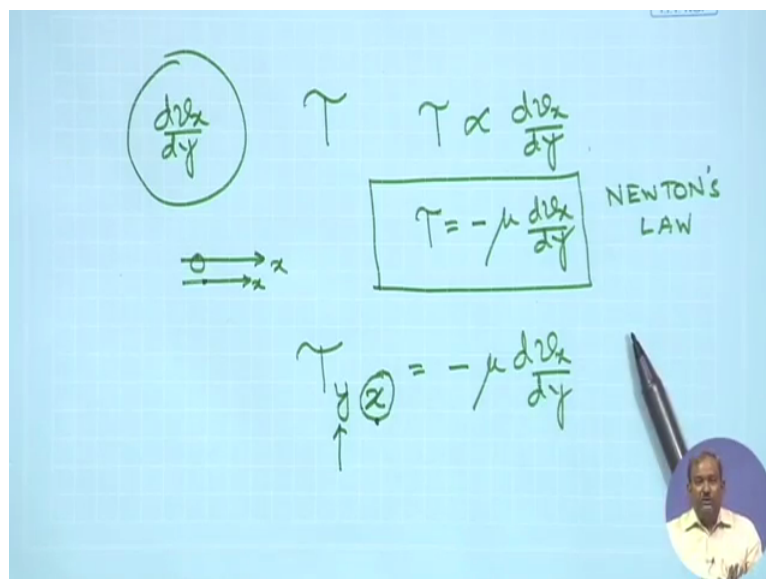 dv_x/dy τ τ ∝ dv_x/dy
τ = -μ dv_x/dy NEWTON'S LAW
x
x
τ_yx = -μ dv_x/dy